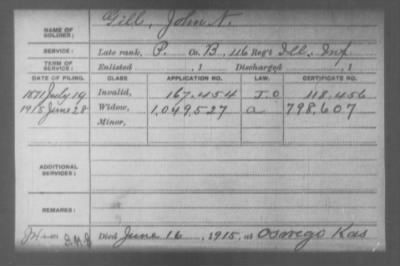 NAME OF SOLDIER: Gill, John N.
SERVICE: Late rank, P. Co. B, 116 Reg't Ill. Inf
TERM OF SERVICE: Enlisted , 1 Discharged , 1
DATE OF FILING. CLASS APPLICATION NO. LAW. CERTIFICATE NO.
1871 July 19 Invalid, 167.454 118.456
1915 June 28 Widow, 1,049,527 a 798,607
Minor,
ADDITIONAL SERVICES:
REMARKS:
Died June 16, 1915, at Oswego Kas